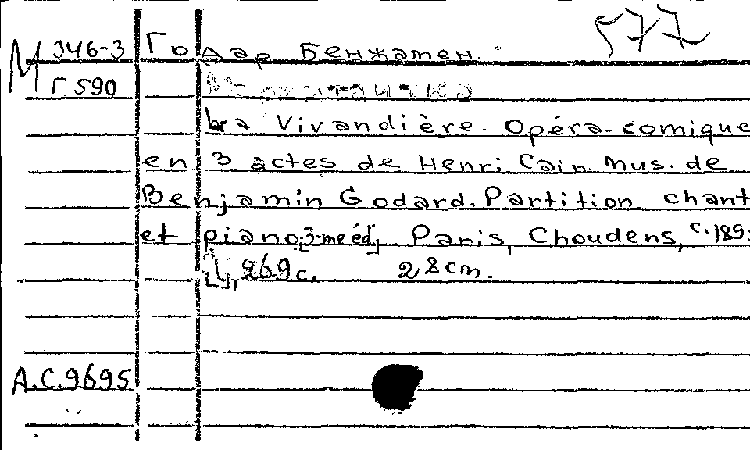 577
М 346-3 Годар Бенжамен.
Г 590
La Vivandière. Opéra-comique
en 3 actes de Henri Cain. Mus. de
Benjamin Godard. Partition chant
et piano. [3-me éd.] Paris, Choudens, c. 189
269 c. 28 cm.
А.С.9695